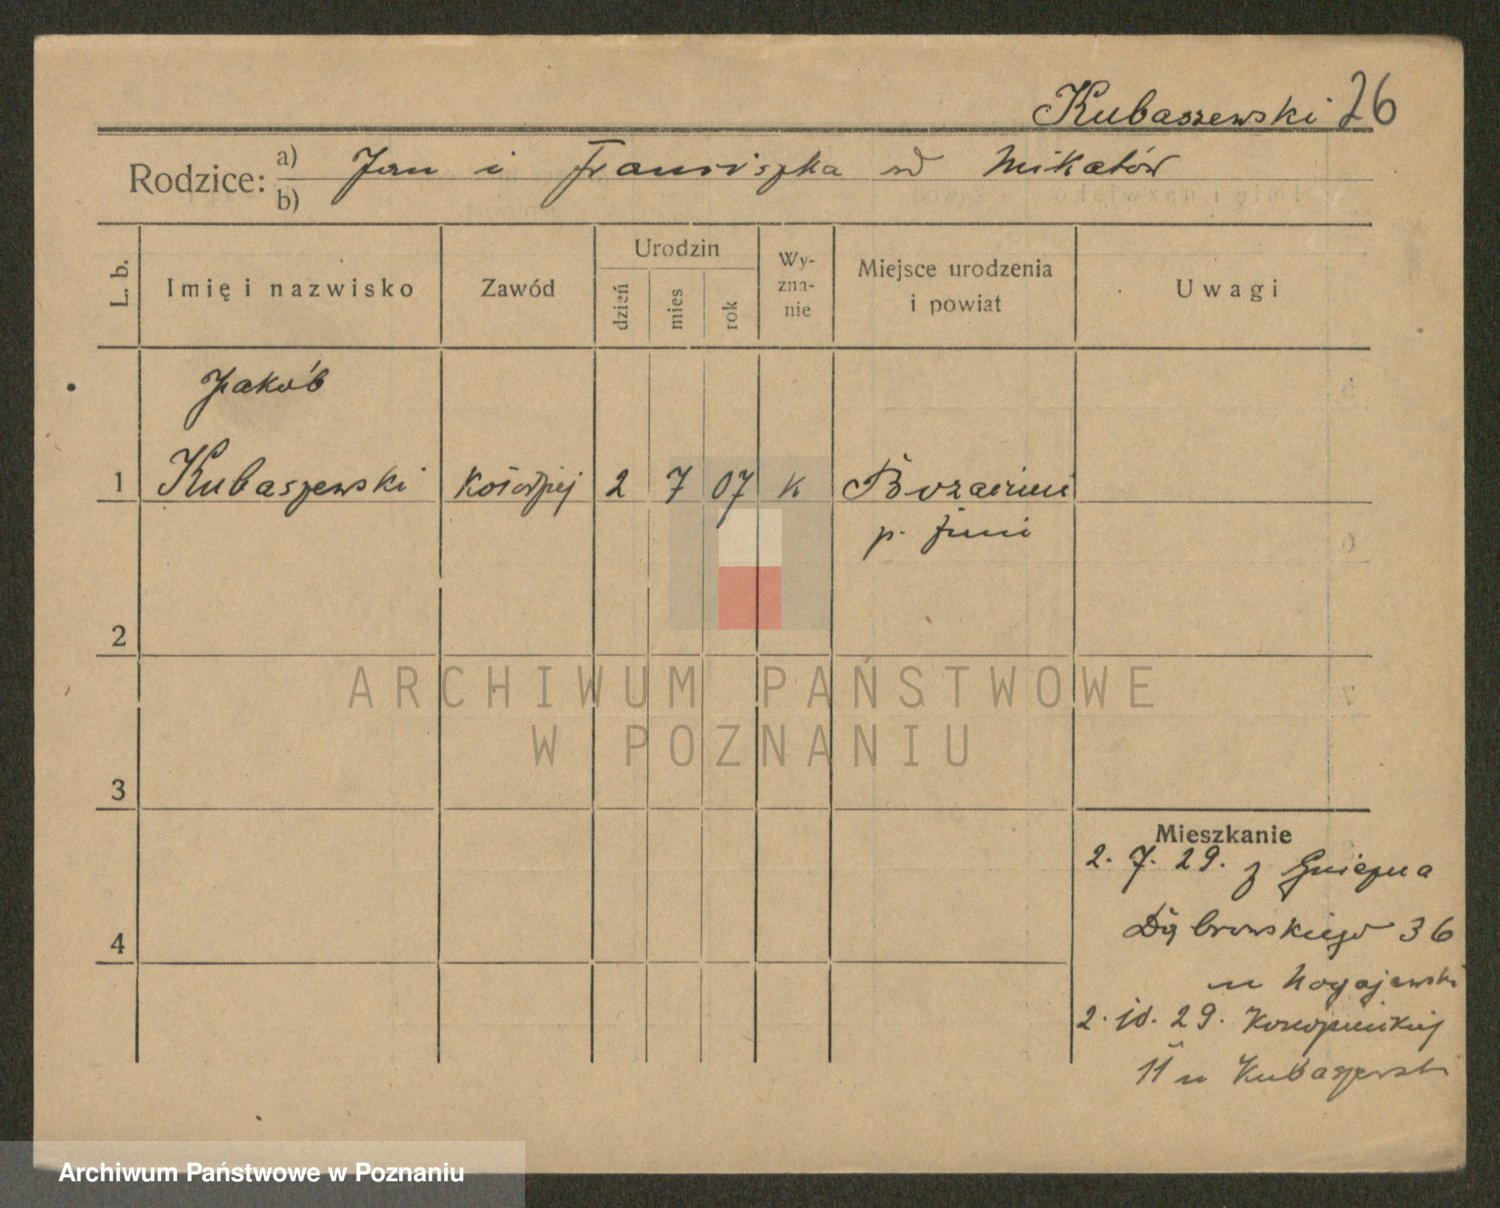 Kubaszewski 26
Rodzice: a) Jan i Franciszka od Mikatów
b)
L. b.
Imię i nazwisko
Zawód
Urodzin
dzień
mies
rok
Wy-
zna-
nie
Miejsce urodzenia
i powiat
Uwagi
Jakób
1 Kubaszewski 2 7 07 K
p. Żnin
2
3
4
Mieszkanie
2. 7. 29. z Gniezna
Dąbrowskiego 36
u Nogajewski
2. 10. 29.
11 u Kubaszewski
ARCHIWUM PAŃSTWOWE
W POZNANIU
Archiwum Państwowe w Poznaniu